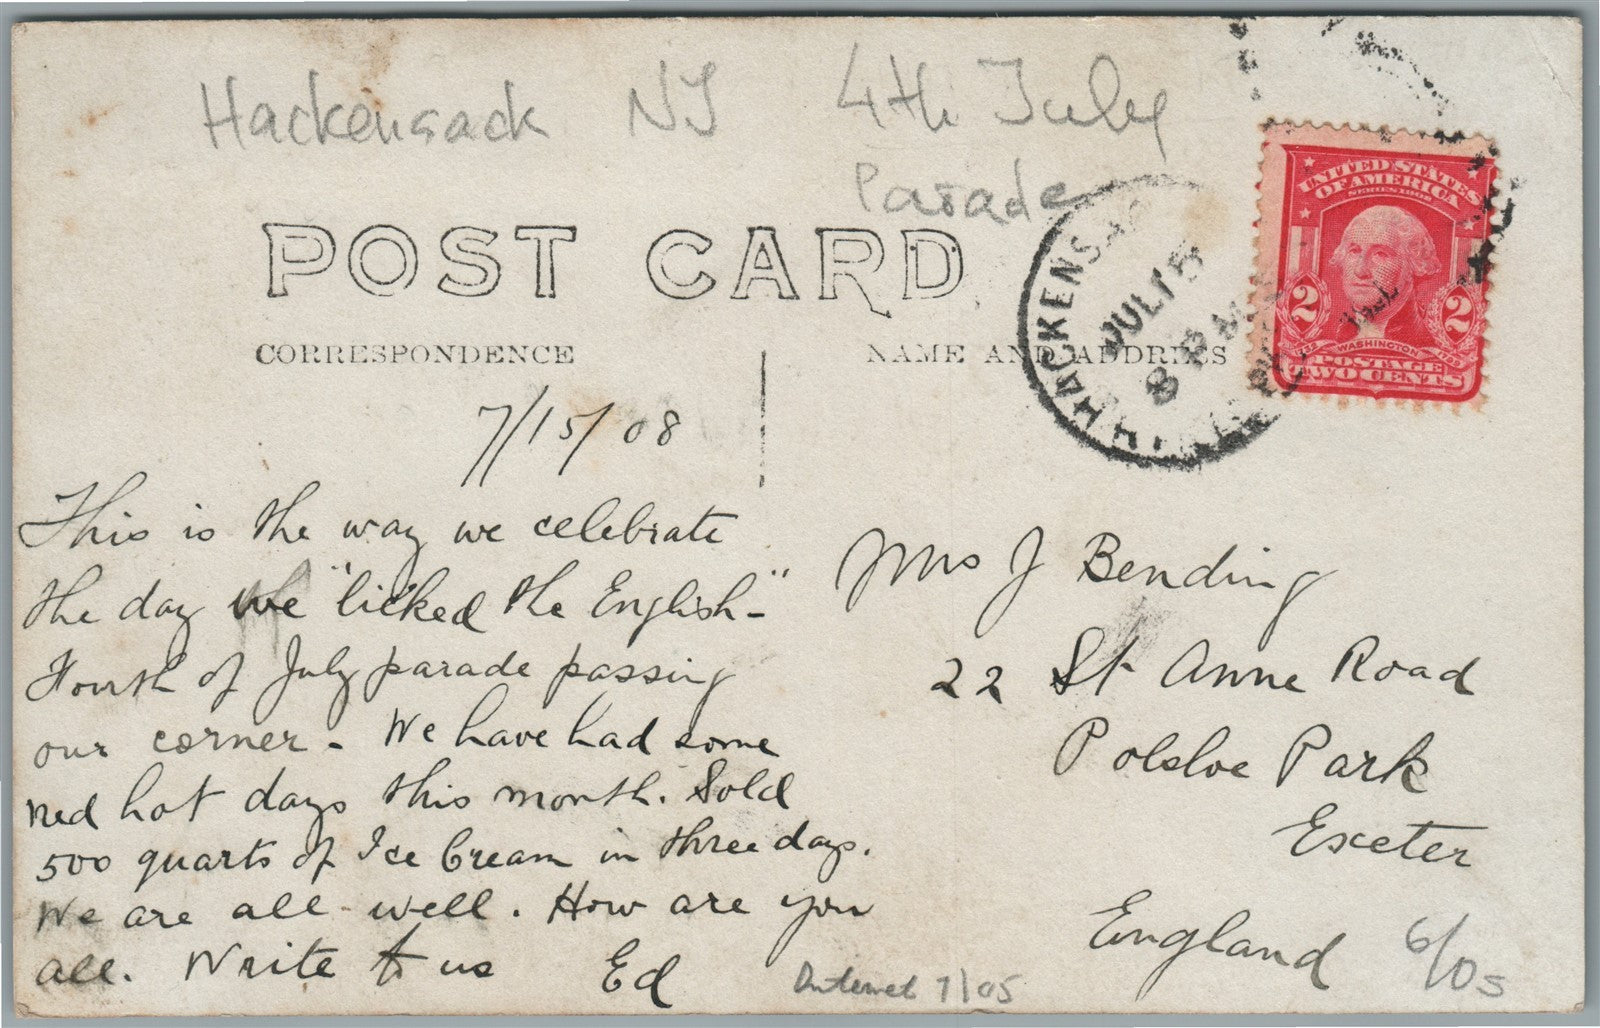 Hackensack NJ 4th July
Parade
POST CARD
CORRESPONDENCE
NAME AND ADDRESS
HACKENSACK
JUL 15
8 PM
UNITED STATES
OF AMERICA
SERIES 1902
2 2
WASHINGTON
POSTAGE
TWO CENTS
7/15/08
This is the way we celebrate
the day we "licked the English-"
Fourth of July parade passing
our corner - We have had some
red hot days this month. Sold
500 quarts of Ice Cream in three days.
We are all well. How are you
all. Write to us Ed
Mrs J Bending
22 St Anne Road
Polsloe Park
Exeter
England
6/05
Internet 7/05